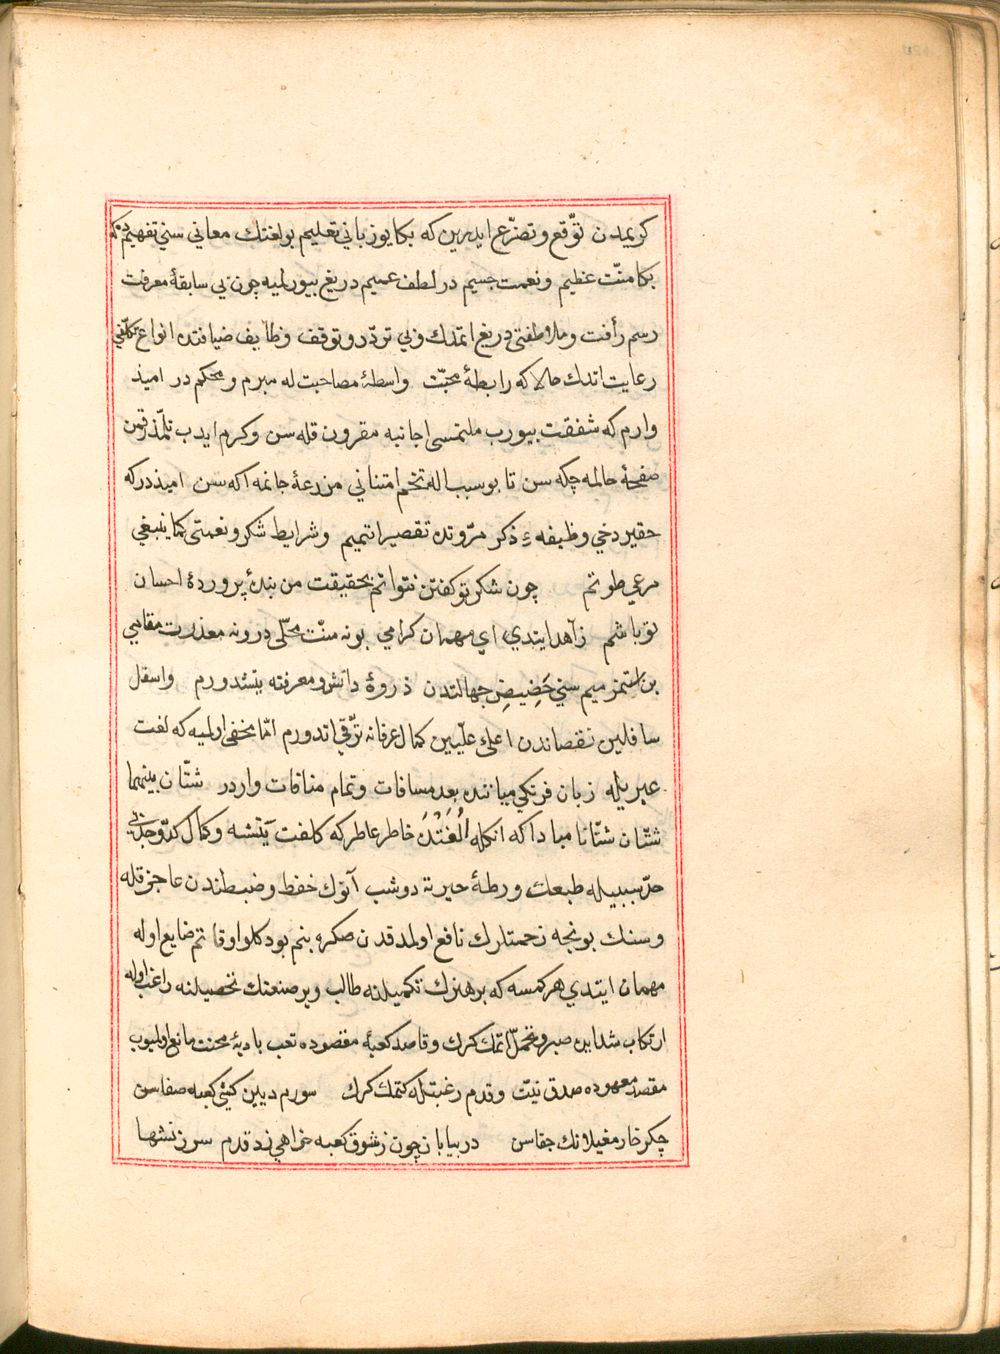 كريمدن توقّع وتضرّع ايدرين كه بكا بو زباني تعليم بو لغتك معاني سني تفهيم
بكا منّت عظيم ونعمت جسيم در لطف عميم دريغ بيورلميه چون بي سابقهٔ معرفت
رسم رأفت وملاطفتي دريغ اتمدك وبي تردّد وتوقف وظايف ضيافتده انواع تكلّفي
رعايت اتدك حالا كه رابطهٔ محبّت واسطهٔ مصاحبت له مبرم ومحكم در اميذ
وارم كه شفقت بيورب ملتمسى اجانبه مقرون قله سن وكرم ايدب تلمّذ رقمن
صفحهٔ حالمه چكه سن تا بو سبب اله تخم امتناني مزرعهٔ جانمه اكه سن اميذدر كه
حقير دخي وظيفهٔ ذكر مرّوتده تقصير اتميم وشرايط شكر ونعمتى كما ينبغي
مرعي طوتم چون شكر تو كفتن نتوانم بحقيقت من بندهٔ پروردهٔ احسان
تو باشم زاهد ايتدي اي مهمان كرامي بو نه منّت محلّى در ونه معذرت مقامي
بن استمزميم سني حَضِيضِ جهالتدن ذروهٔ دانش ومعرفته يتشدورم واسفل
سافلين نقصاندن اعلى علّيين كمال عرفانه ترّقي اتدورم امّا مخفى اولميه كه لغت
عبريله زبان فرنكي ميانده بعد مسافات وتمام منافات واردر شتّان بينهما
شتّان شتّانا مبادا كه انكله اُلفَتْدَنْ خاطر عاطركه كلفت يتشه وكمال كدّ وجدّ بي
حدّ سببيله طبعك ورطهٔ حيرته دوشب آنوك خفظ وضبطندن عاجز قله
وسنك بونجه زحمتلرك نافع اولمدقدن صكره بنم بودكلو اوقاتم ضايع اوله
مهمان ايتدي هر كمسه كه بر هنرك تكميلنه طالب وبر صنعتك تحصيلنه راغب اوله
ارتكاب شدايد صبر وتحمّل اتمك كرك وقاصد كعبهٔ مقصوده تعب باديهٔ محنت مانع اولميوب
مقصد معهوده صدق نيّت وقدم رغبتله كتمك كرك سورم ديين كيشي كعبه صفاسن
چكر خار مغيلانك جفاسن در بيابان چون ز شوق كعبه خواهي زد قدم سرزنشها